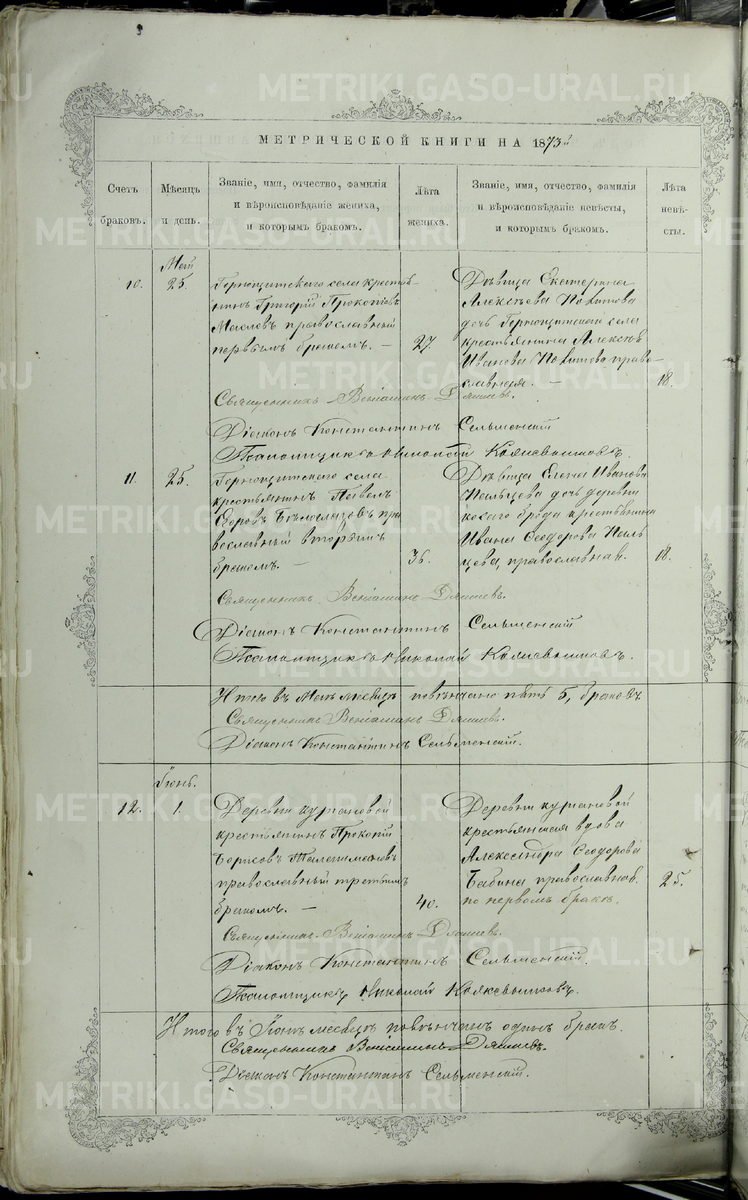 МЕТРИЧЕСКОЙ КНИГИ НА 1873 г
Счетъ браковъ.
Мѣсяцъ и день.
Званіе, имя, отчество, фамилія и вѣроисповѣданіе жениха, и которымъ бракомъ.
Лѣта жениха.
Званіе, имя, отчество, фамилія и вѣроисповѣданіе невѣсты, и которымъ бракомъ.
Лѣта невѣсты.
Май
10.
25.
Горнощитскаго села крестья-
нинъ Григорій Прокопьевъ
Масловъ православный
первымъ бракомъ. —
27.
Дѣвица Екатерина
Алексѣева
дочь Горнощитскаго села
крестьянина Алексѣя
Иванова право-
славная. —
18.
Священникъ Веніаминъ
Діаконъ Константинъ Сельменскій
Псаломщикъ Николай
11.
25.
Горнощитскаго села
крестьянинъ Павелъ
Егоровъ пра
вославный вторымъ
бракомъ. —
36.
Дѣвица Елена Иванова
Пальцева дочь деревни
косаго брода крестьянина
Ивана Ѳеодорова Паль
цева, православная.
18.
Священникъ Веніаминъ
Діаконъ Константинъ Сельменскій
Псаломщикъ Николай
Итого въ Маѣ месяцѣ повѣнчано пять 5, браковъ
Священникъ Веніаминъ
Діаконъ Константинъ Сельменскій.
Іюнь.
12.
1.
Деревни кургановой
крестьянинъ Прокопій
Борисовъ
православный третьимъ
бракомъ. —
40.
Деревни кургановой
крестьянская вдова
Александра Ѳеодорова
Бабина православная.
по первомъ бракѣ.
25.
Священникъ Веніаминъ
Діаконъ Константинъ Сельменскій.
Псаломщикъ Николай
Итого въ Іюнѣ месяцѣ повѣнчанъ одинъ бракъ.
Священникъ Веніаминъ
Діаконъ Константинъ Сельменскій.
METRIKI.GASO-URAL.RU